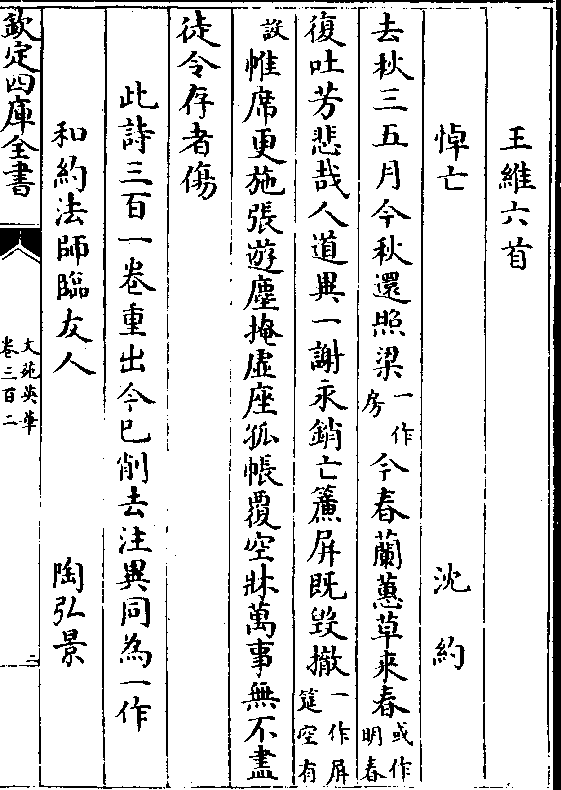 王維六首
悼亡　沈約
去秋三五月今秋還照梁一作房今春蘭蕙草來春或作明春
復吐芳悲哉人道異一謝永銷亡簾屏既毀撤一作屏筵空有
設帷席更施張遊塵掩虛座孤帳覆空牀萬事無不盡
徒令存者傷
此詩三百一卷重出今已削去注異同為一作
和約法師臨友人　陶弘景
欽定四庫全書
文苑英華
卷三百二
三